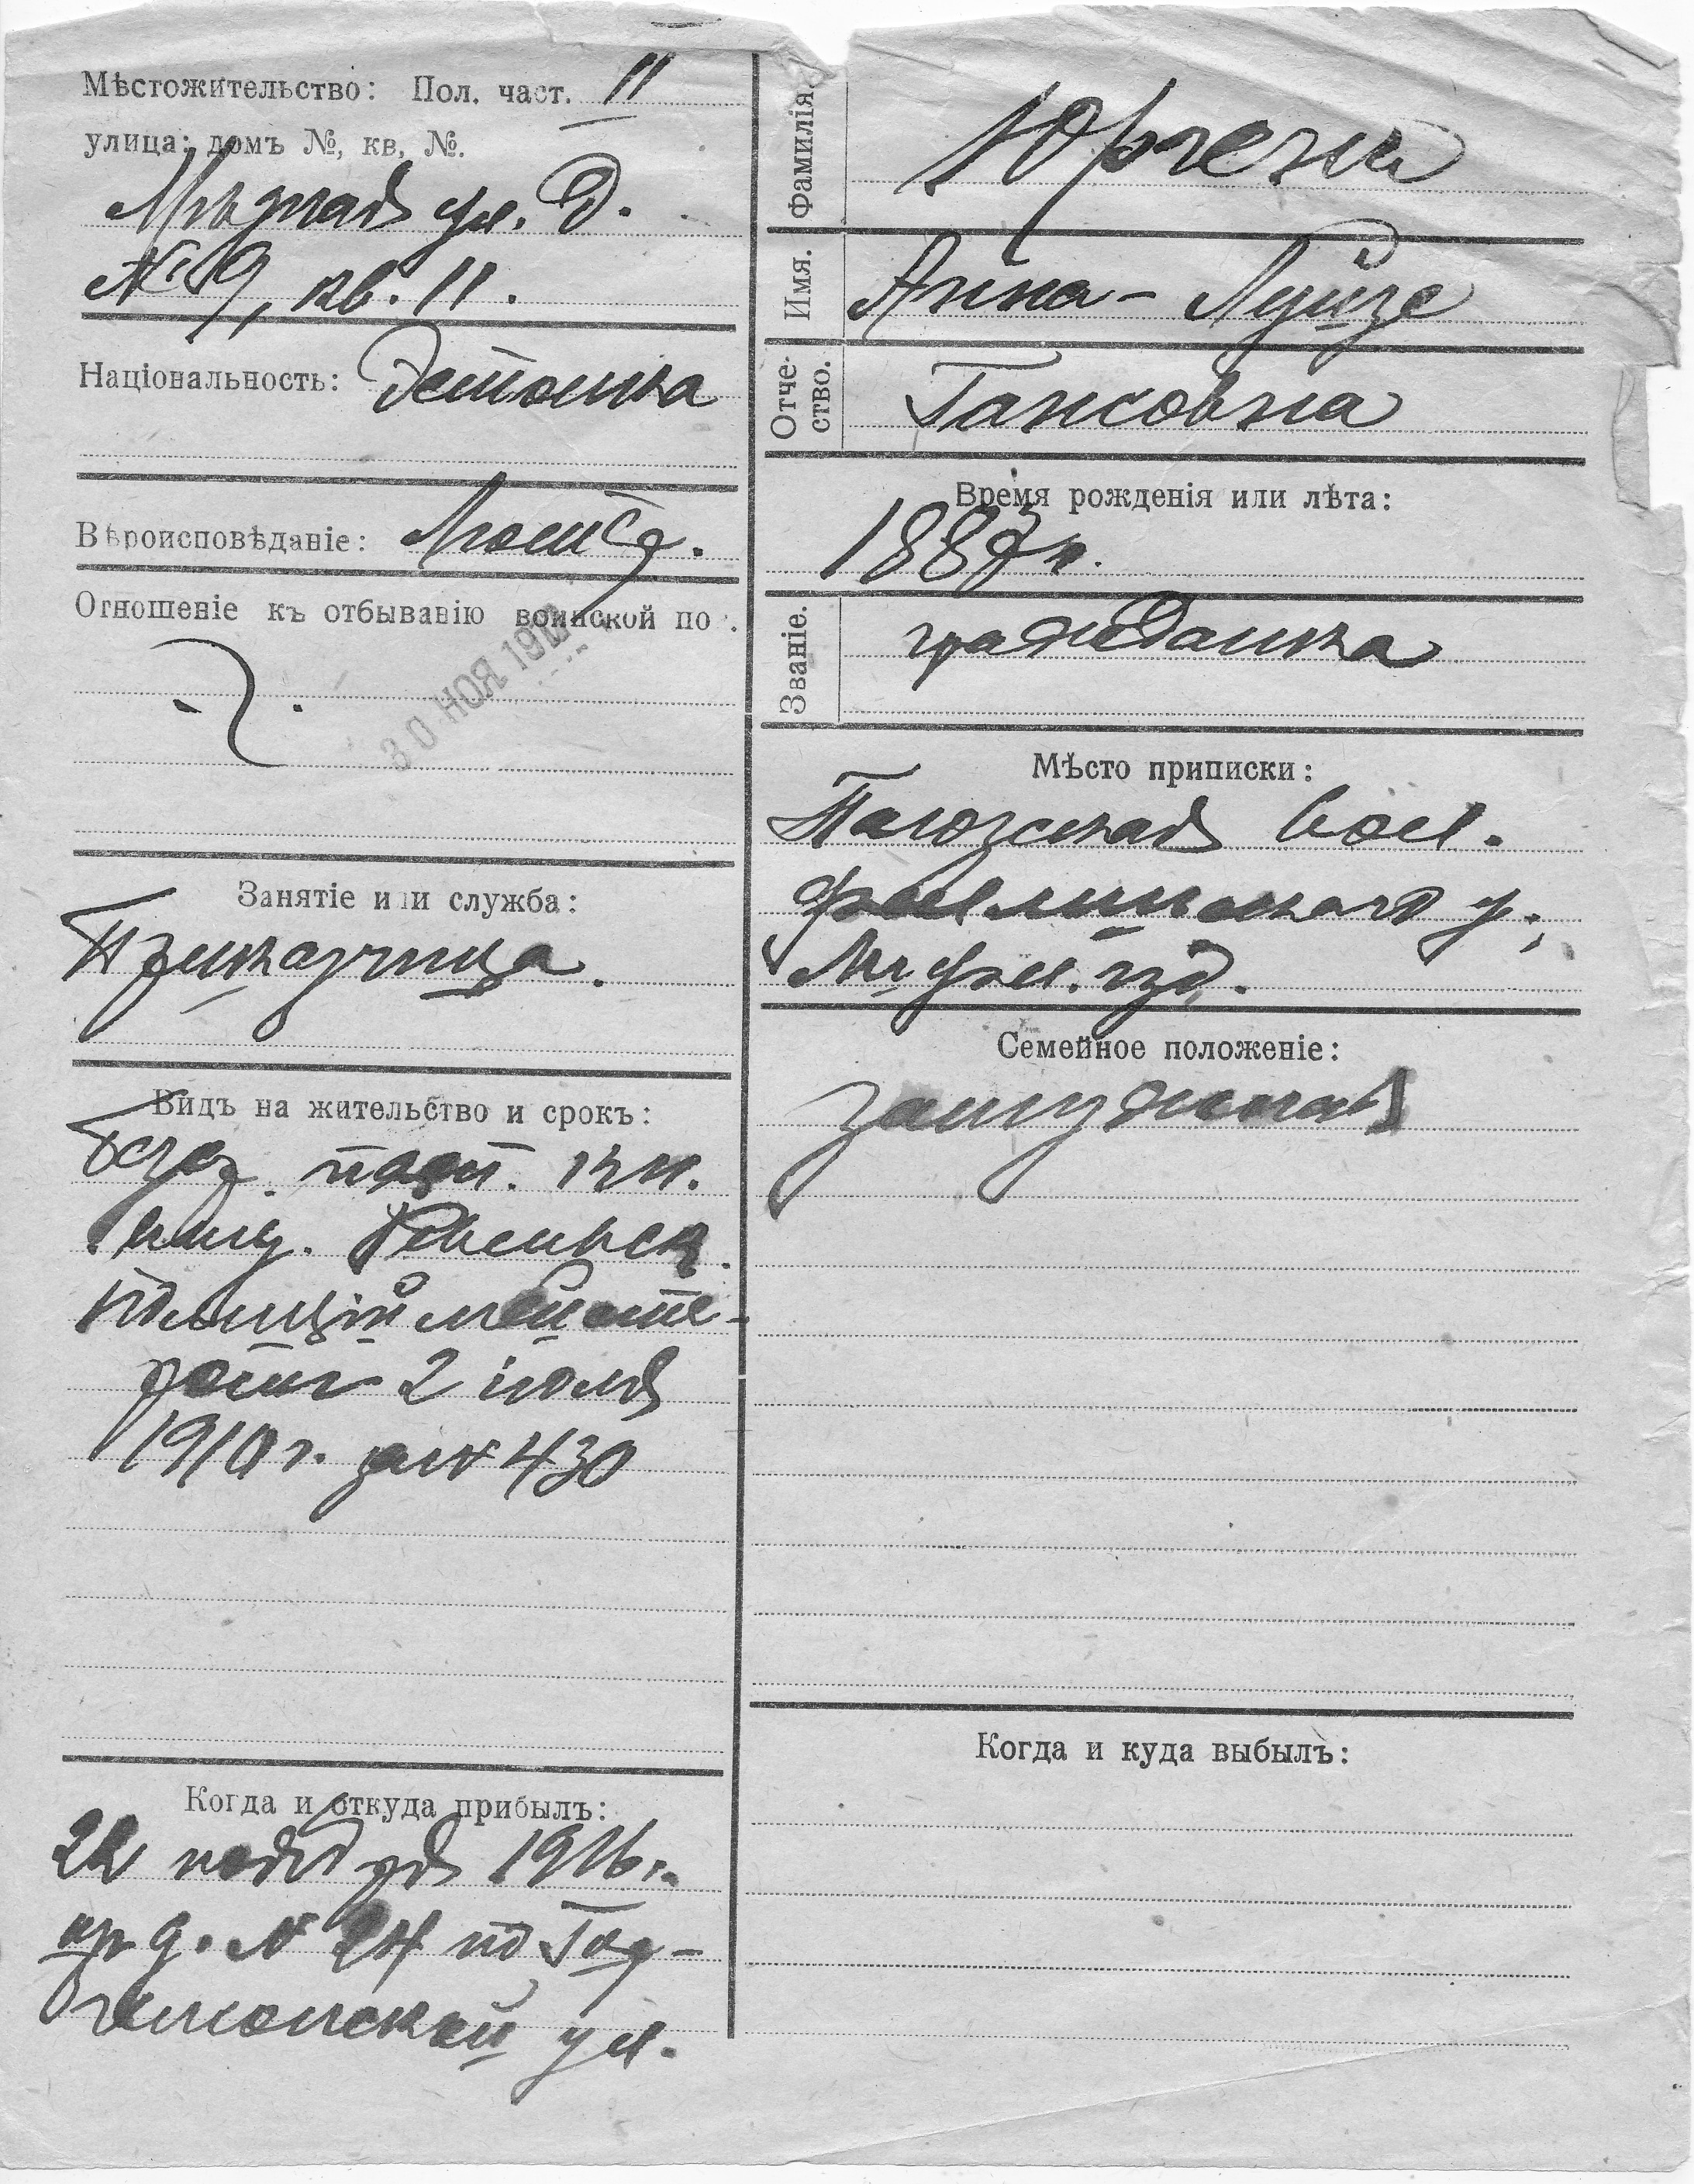 Мѣстожительство: Пол. част. II
улица: домъ №, кв. №.
ул. д.
№ 9, кв. 11.
Національность: Эстонка
Вѣроисповѣданіе: Лют.
Отношеніе къ отбыванію воинской по .
30 НОЯ 191
Занятіе или служба:
Видъ на жительство и срокъ:
Безс. пасп. кн.
выд. Ревельск.
Полиціймейсте-
ромъ 2 іюля
1910 г. за № 430
Когда и откуда прибылъ:
22 ноября 1916 г.
из д. № 24 по
ул.
Фамилія. Юргенс
Имя. Анна - Луизе
Отче-
ство. Гансовна
Время рожденія или лѣта:
1887 г.
Званіе. гражданка
Мѣсто приписки:
вол.
Феллинскаго у.,
Лифл. губ.
Семейное положеніе:
замужняя
Когда и куда выбылъ: